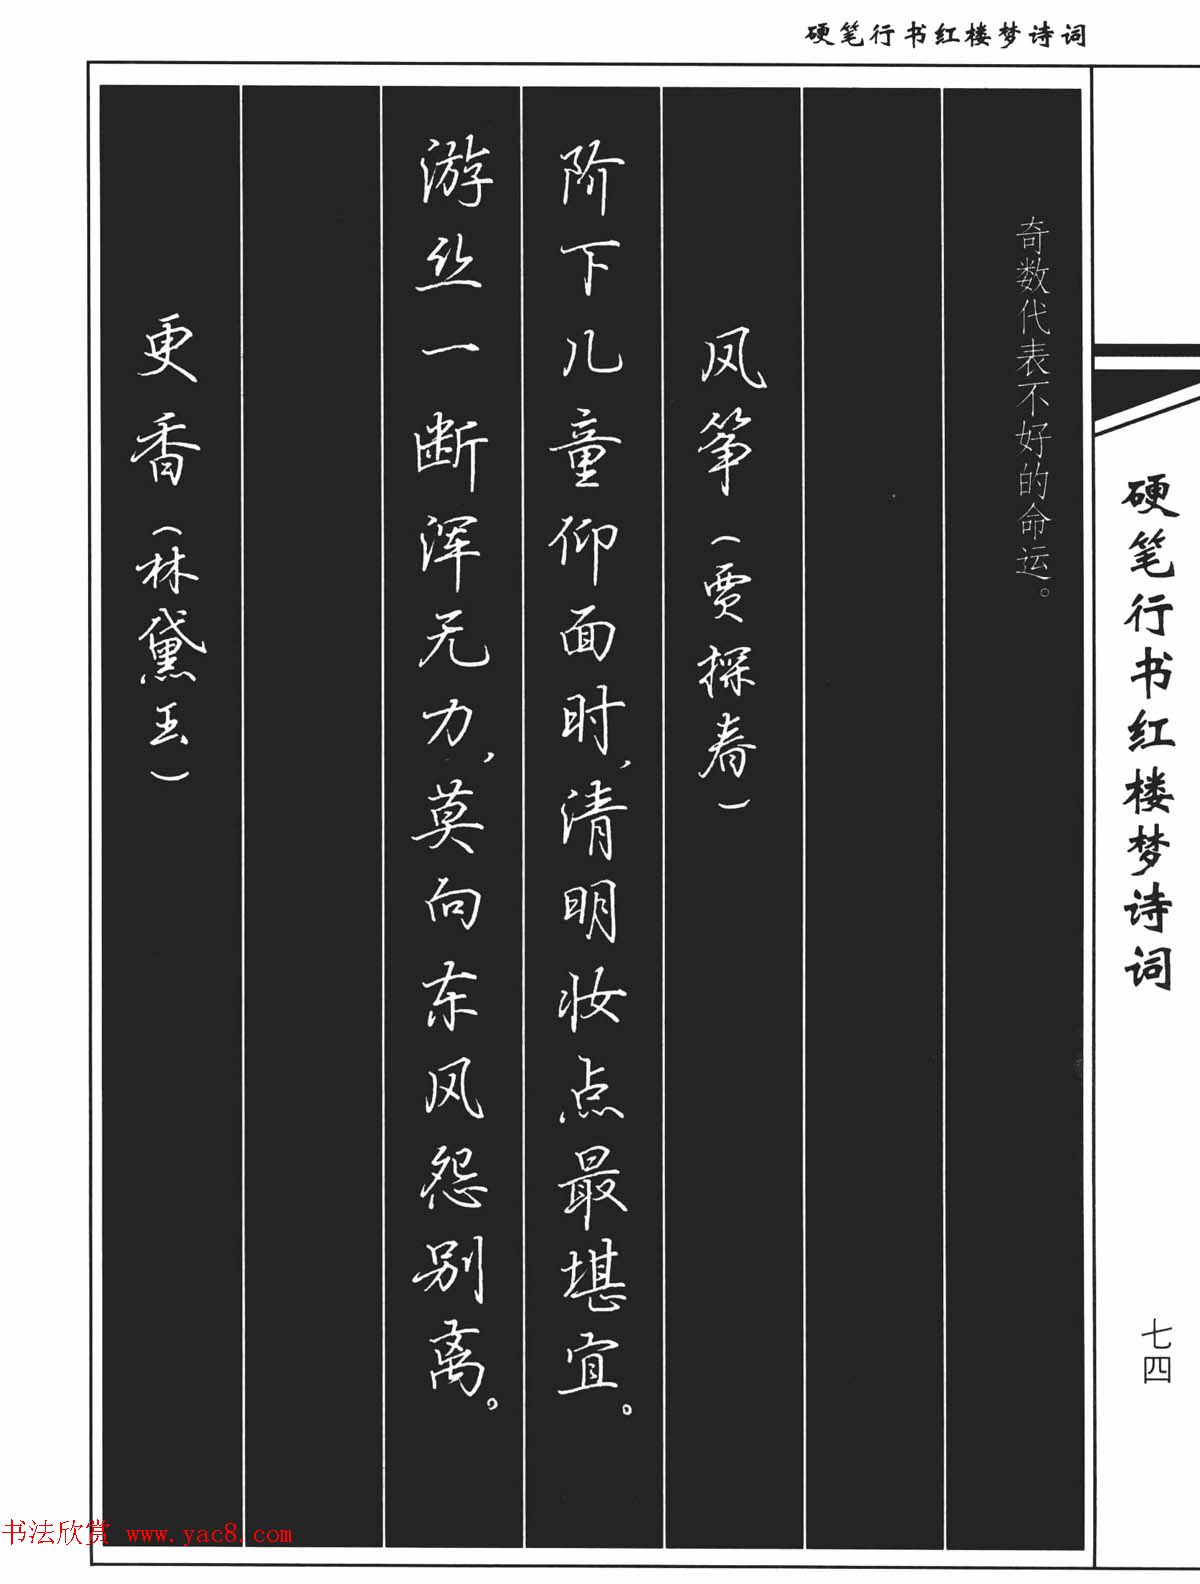 硬笔行书红楼梦诗词
硬笔行书红楼梦诗词
七四
奇数代表不好的命运。
风筝(贾探春)
阶下儿童仰面时,清明妆点最堪宜。
游丝一断浑无力,莫向东风怨别离。
更香(林黛玉)
书法欣赏 www.yac8.com